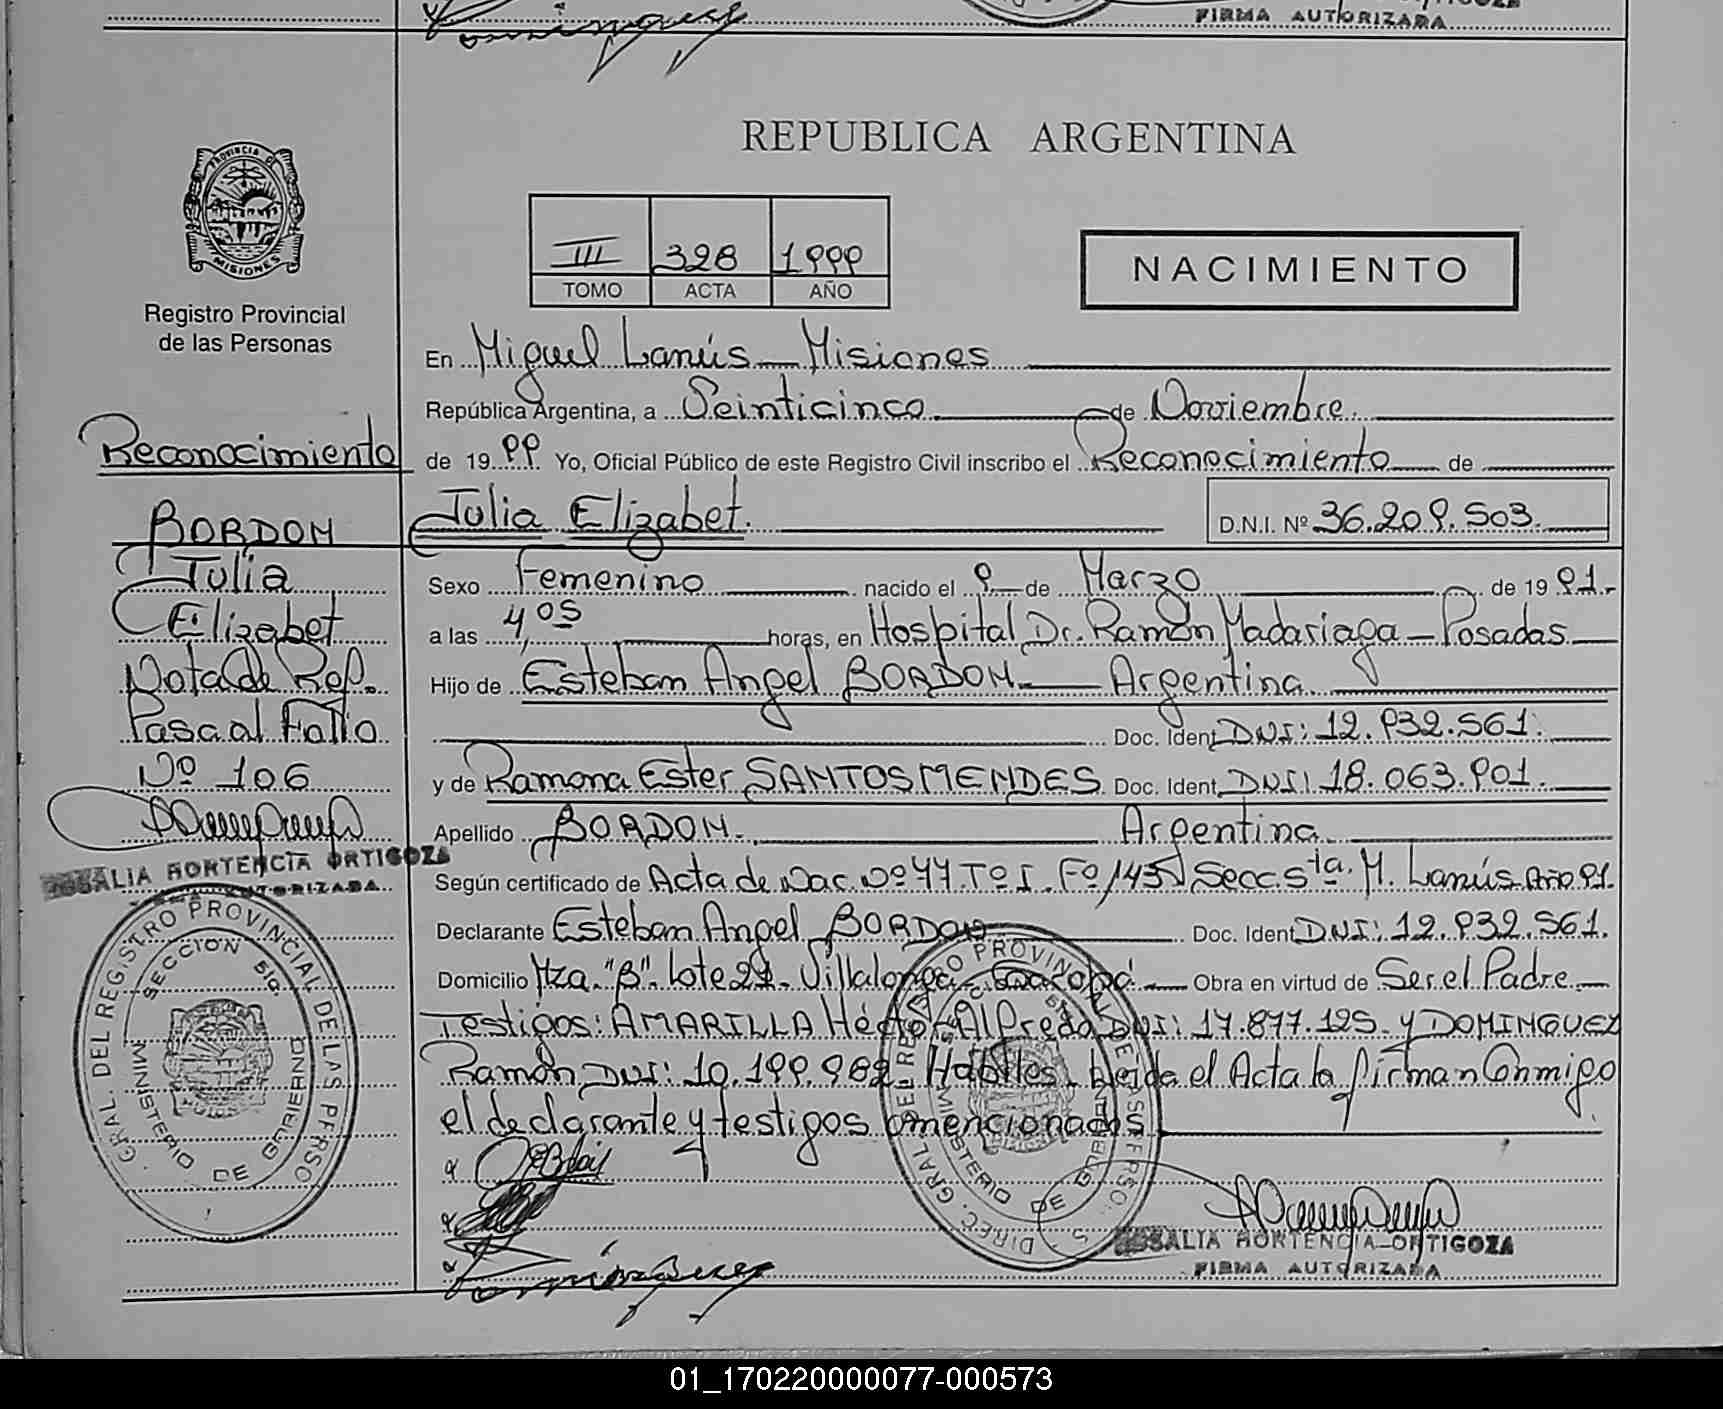 FIRMA AUTORIZADA
REPUBLICA ARGENTINA
PROVINCIA DE
MISIONES
Registro Provincial
de las Personas
III 328 1999
TOMO ACTA AÑO
NACIMIENTO
En Miguel Lanús - Misiones
República Argentina, a Veinticinco de Noviembre
de 1999 Yo, Oficial Público de este Registro Civil inscribo el Reconocimiento de
Julia Elizabet.
D.N.I. Nº 36.209.503.
Sexo Femenino nacido el 9 de Marzo de 1991.
a las 4,05 horas, en Hospital Dr. Ramón Madariaga - Posadas.
Hijo de Esteban Angel BORDON - Argentina
Doc. Ident DNI: 12.932.561.
y de Ramona Ester SANTOSMENDES Doc. Ident. DNI: 18.063.901.
Apellido BORDON. Argentina
Según certificado de Acta de Nac. Nº 77. Tº I. Fº 145 Secc 5ta. M. Lanús Año 91.
Declarante Esteban Angel BORDON Doc. Ident DNI: 12.932.561.
Domicilio Mza. "B". Lote 21. Villalonga - Obra en virtud de Ser el Padre.
Testigos: AMARILLA Héctor Alfredo DNI: 17.877.125. y DOMINGUEZ
Ramón DNI: 10.199.982. Hábiles. Leída el Acta la firman Conmigo
el declarante y testigos mencionados
ROSALIA HORTENCIA ORTIGOZA
FIRMA AUTORIZADA
Reconocimiento
BORDON
Julia
Elizabet
Nota de Ref.
Pasa al Folio
Nº 106
ROSALIA HORTENCIA ORTIGOZA
AUTORIZADA
GRAL. DEL REGISTRO PROVINCIAL DE LAS PERSO
SECCION 5ta.
MINISTERIO DE GOBIERNO
DIREC. GRAL. DEL REGISTRO PROVINCIAL DE LAS PERSO
MINISTERIO DE GOBIERNO
01_170220000077-000573